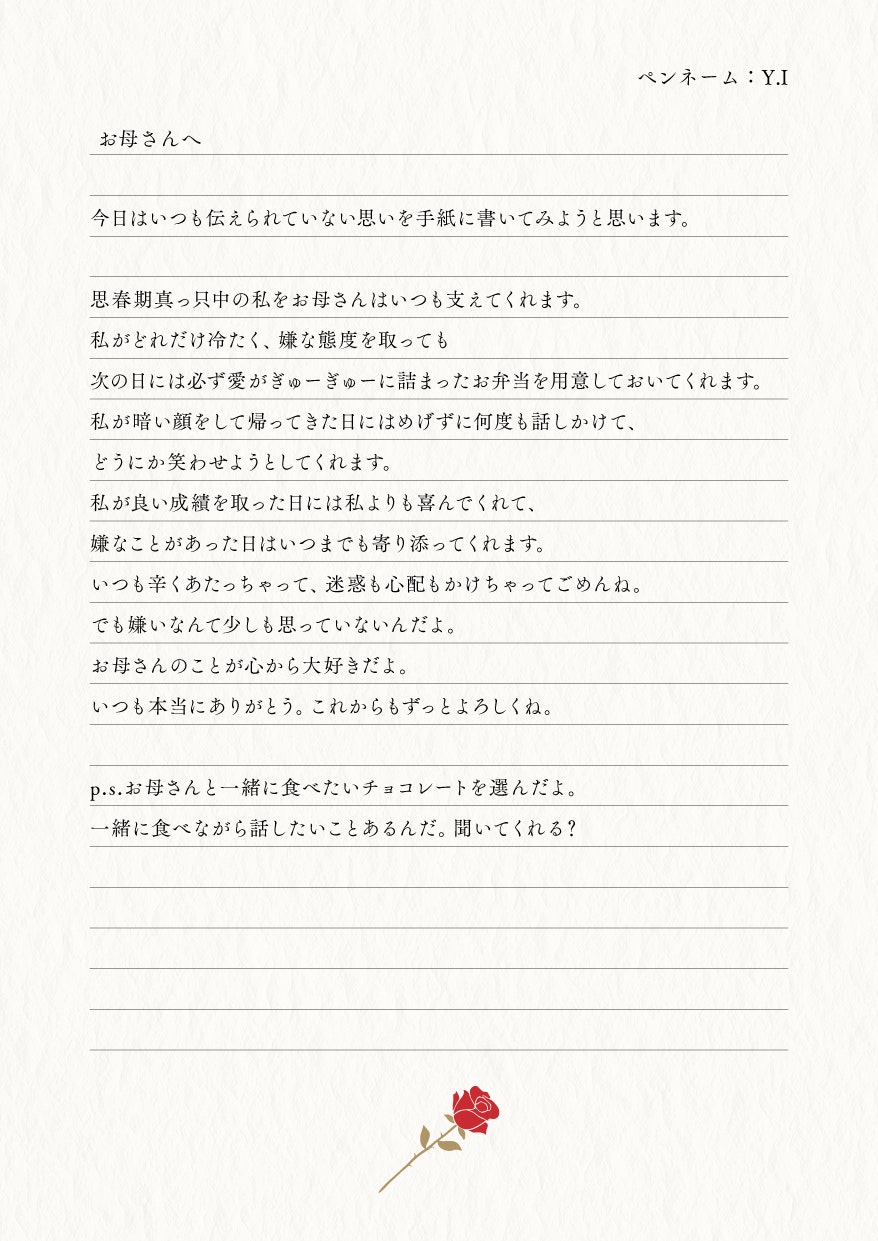 ペンネーム：Y.I
お母さんへ
今日はいつも伝えられていない思いを手紙に書いてみようと思います。
思春期真っ只中の私をお母さんはいつも支えてくれます。
私がどれだけ冷たく、嫌な態度を取っても
次の日には必ず愛がぎゅーぎゅーに詰まったお弁当を用意しておいてくれます。
私が暗い顔をして帰ってきた日にはめげずに何度も話しかけて、
どうにか笑わせようとしてくれます。
私が良い成績を取った日には私よりも喜んでくれて、
嫌なことがあった日はいつまでも寄り添ってくれます。
いつも辛くあたっちゃって、迷惑も心配もかけちゃってごめんね。
でも嫌いなんて少しも思っていないんだよ。
お母さんのことが心から大好きだよ。
いつも本当にありがとう。これからもずっとよろしくね。
p.s.お母さんと一緒に食べたいチョコレートを選んだよ。
一緒に食べながら話したいことあるんだ。聞いてくれる？